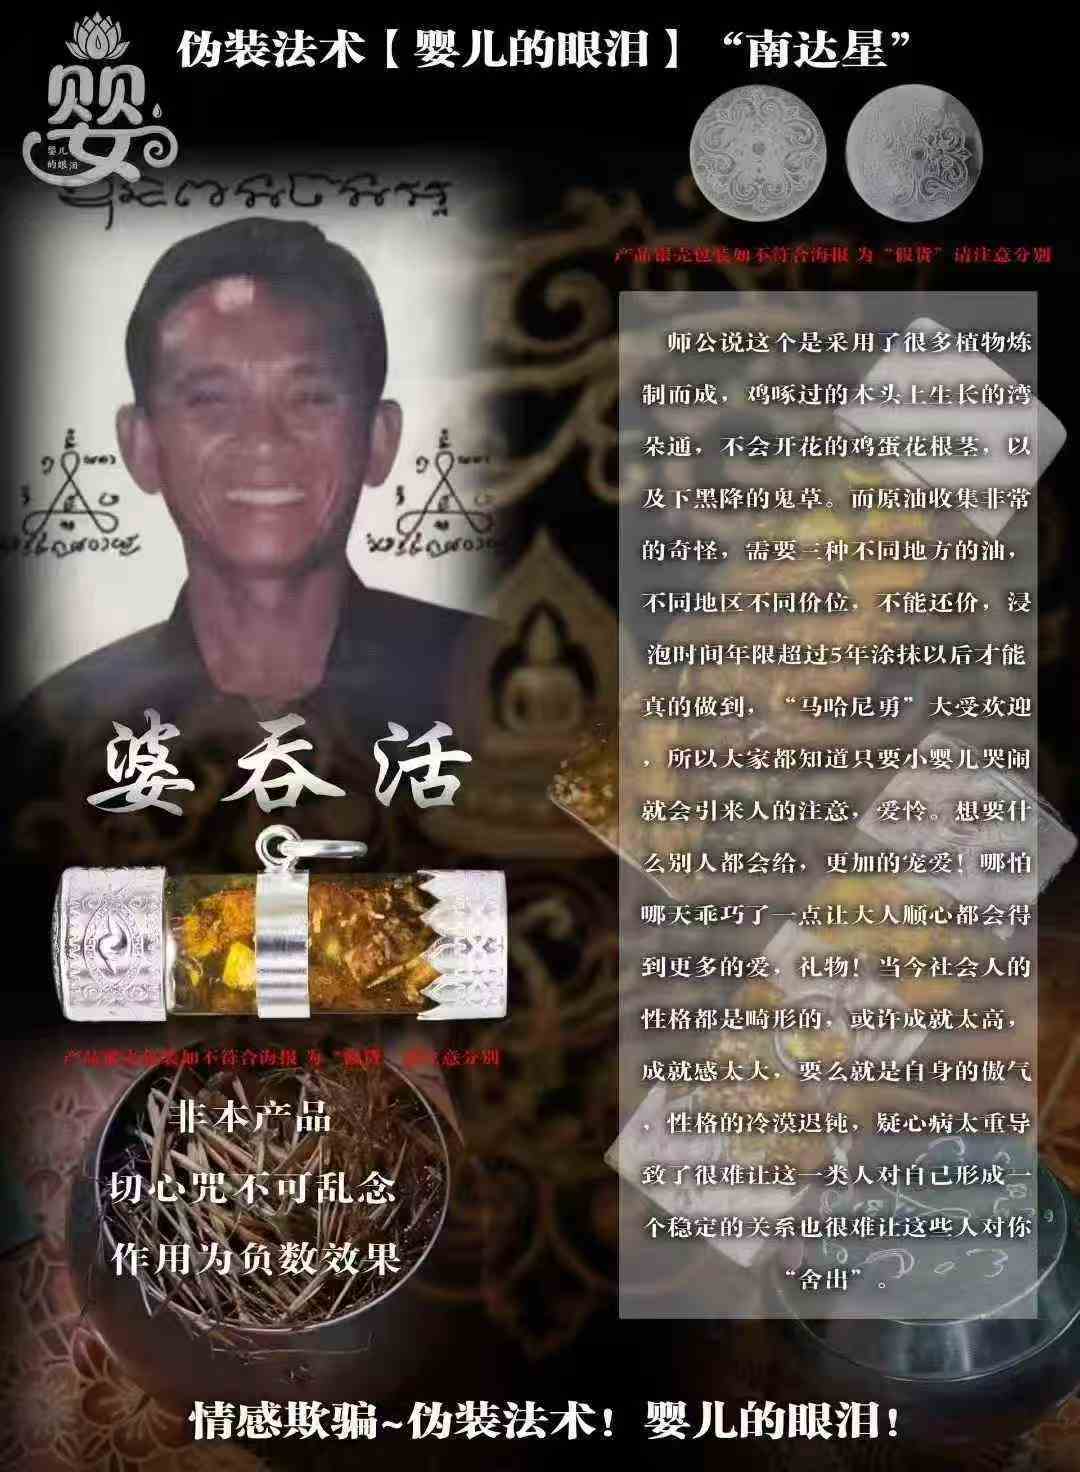 伪装法术【婴儿的眼泪】“南达星”
婴
婴儿
的眼泪
产品银壳包装如不符合海报 为“假货”请注意分别
师公说这个是采用了很多植物炼
制而成，鸡啄过的木头上生长的湾
朵通，不会开花的鸡蛋花根茎，以
及下黑降的鬼草。而原油收集非常
的奇怪，需要三种不同地方的油，
不同地区不同价位，不能还价，浸
泡时间年限超过5年涂抹以后才能
真的做到，“马哈尼勇”大受欢迎
，所以大家都知道只要小婴儿哭闹
就会引来人的注意，爱怜。想要什
么别人都会给，更加的宠爱！哪怕
哪天乖巧了一点让大人顺心都会得
到更多的爱，礼物！当今社会人的
性格都是畸形的，或许成就太高，
成就感太大，要么就是自身的傲气
，性格的冷漠迟钝，疑心病太重导
致了很难让这一类人对自己形成一
个稳定的关系也很难让这些人对你
“舍出”。
婆吞活
产品银壳包装如不符合海报 为“假货”请注意分别
非本产品
切心咒不可乱念
作用为负数效果
情感欺骗~伪装法术！婴儿的眼泪！